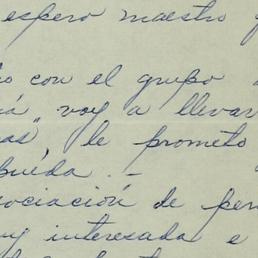 espero maestro
con el grupo
voy a llevar
as", le prometo
buída. -
sociación de per
uy interesada e